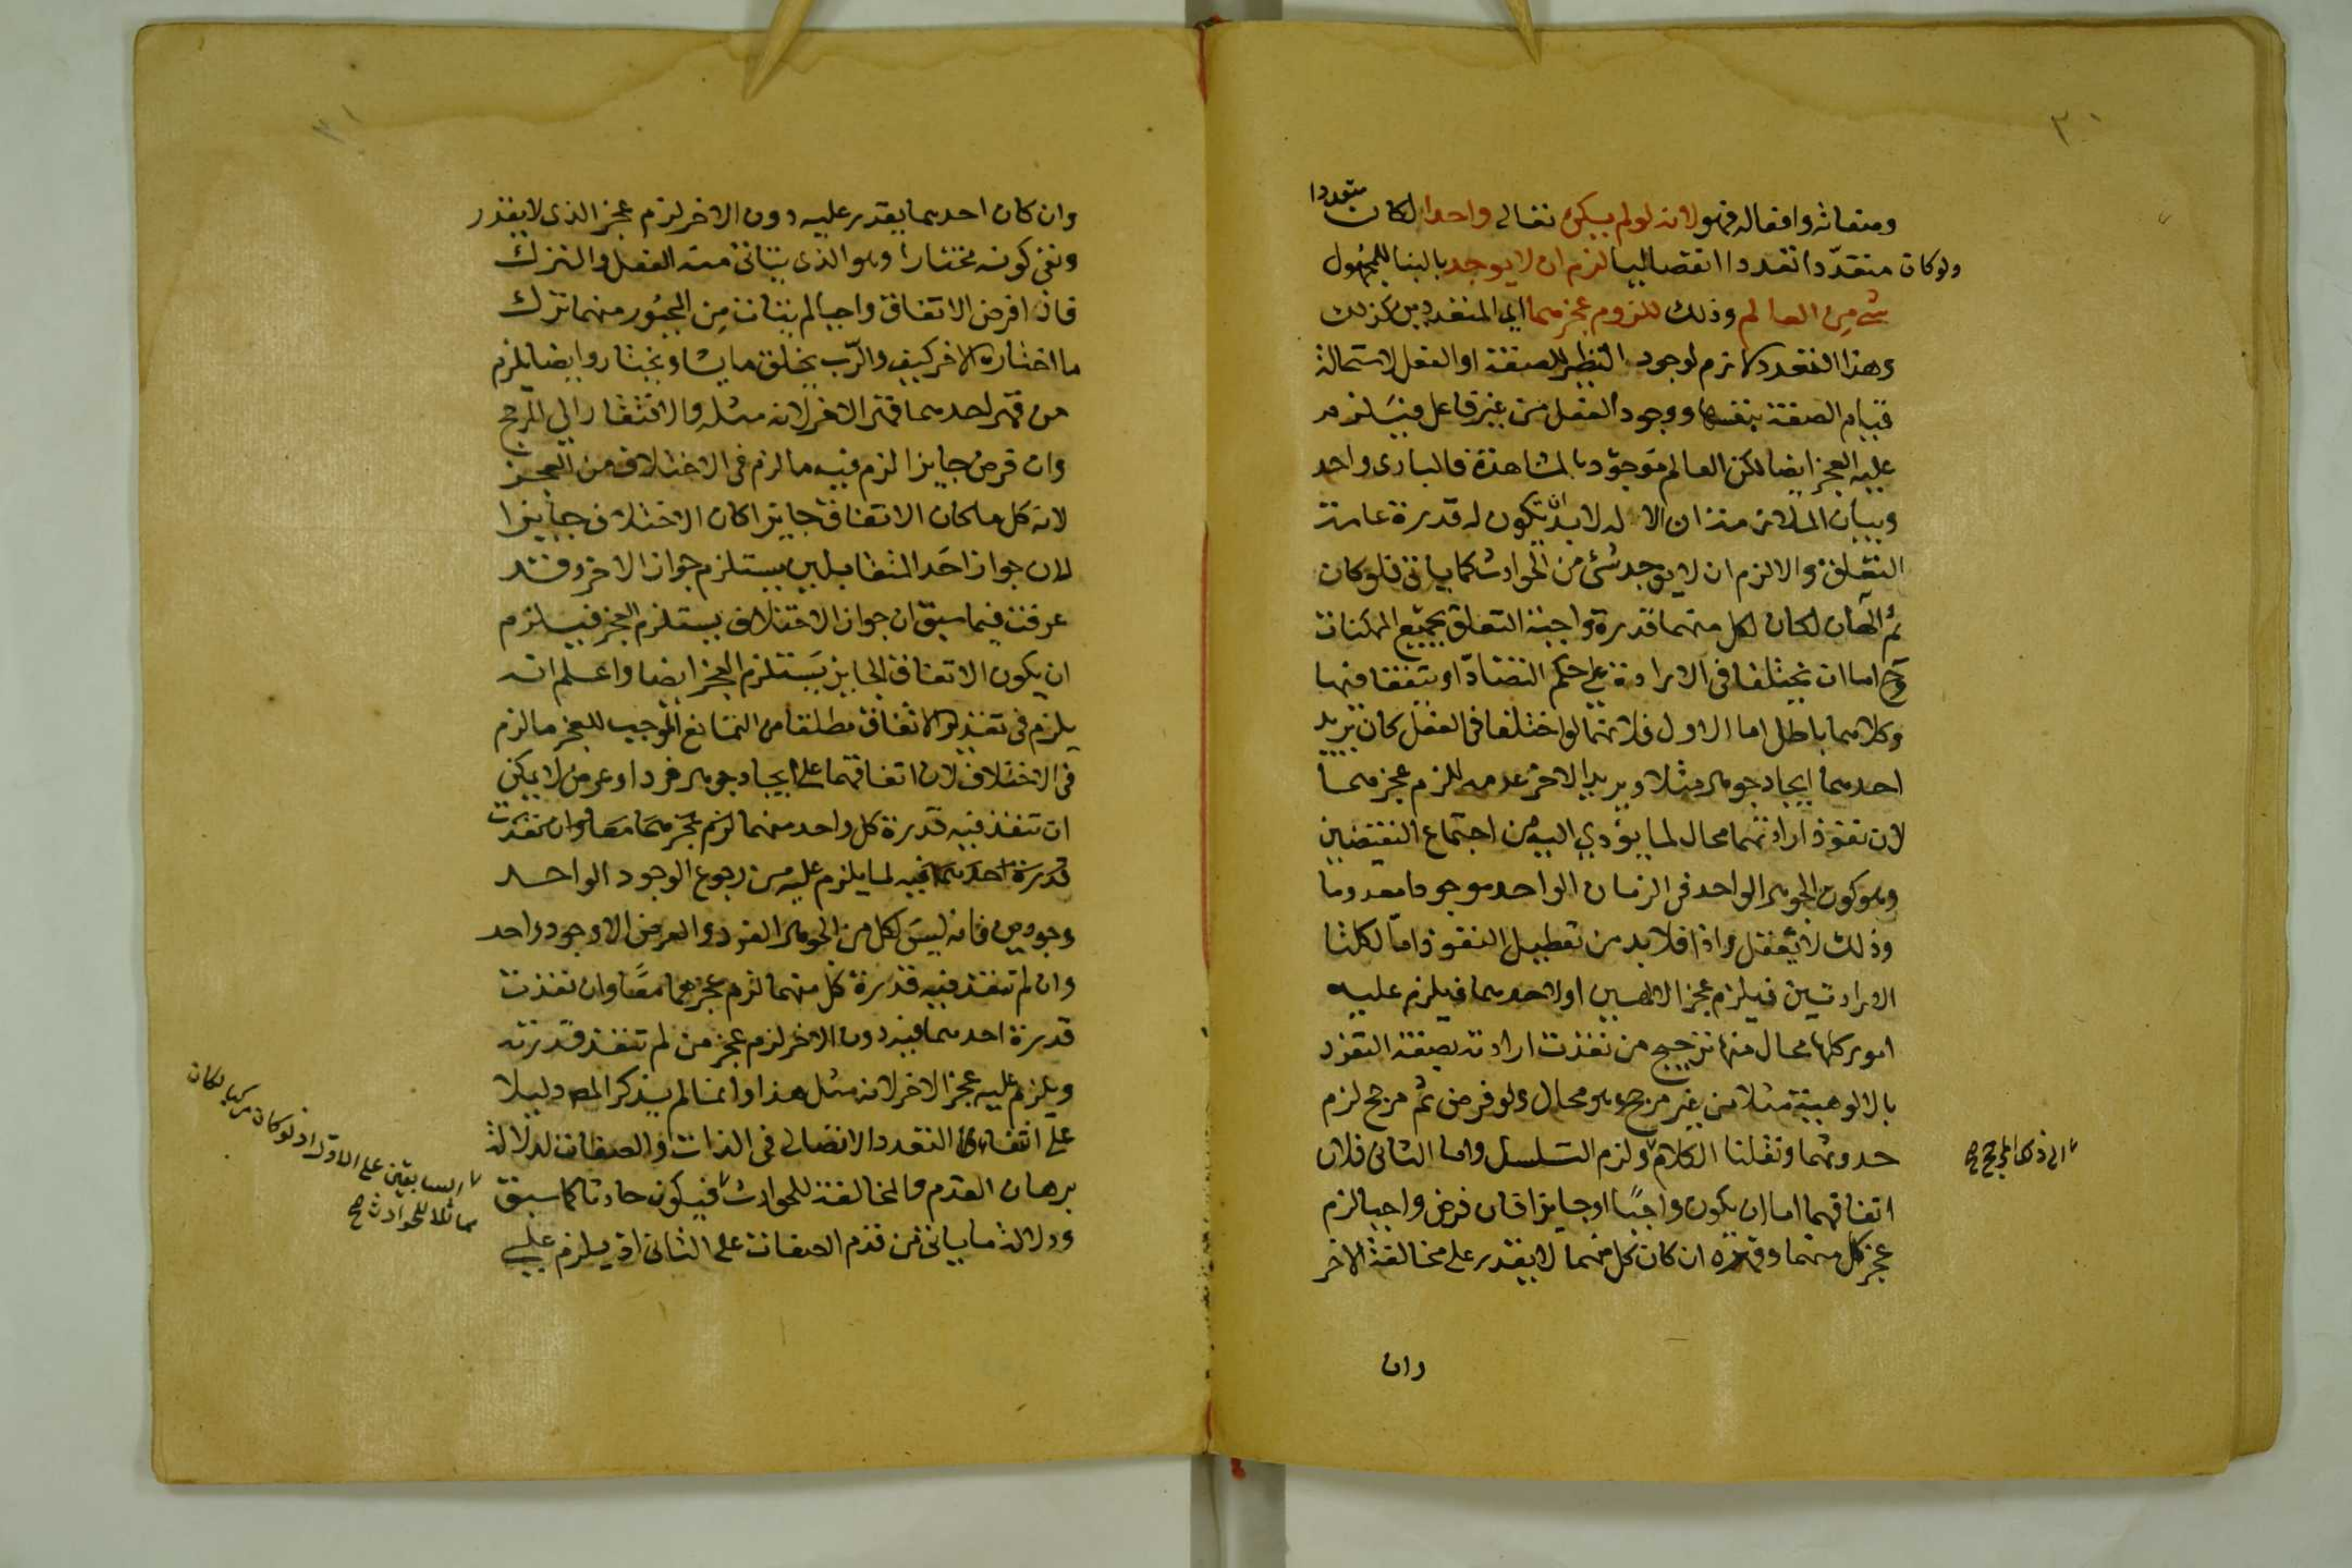 ٣٠
وصفاته وافعاله فهو لانه لو لم يكن تعالى واحدا لكان متعددا
ولو كان متعدّدا تعددا انفصاليا لزم ان لا يوجد بالبنا للمجهول
شي من العالم وذلك للزوم عجزهما اي المتعددين كذلك
وهذا التعدد لازم لوجود النظير للصفة او الفعل لاستحالة
قيام الصفة بنفسها ووجود الفعل من غير فاعل فيسلزم
عليه العجز ايضا لكن العالم موجود بالمشاهدة فالبارى واحد
وبيان الملازمة ان الاله لا بد ان يكون له قدرة عامة
التعلق والا لزم ان لا يوجد شئ من الحوادث كما ياتى فلو كان
ثم الهان لكان لكل منهما قدرة واجبة التعلق بجميع الممكنات
وح اما ان يختلفا فى الارادة على حكم التضادّ او يتفقا فيها
وكلاهما باطل اما الاول فلانهما لو اختلفا فى الفعل كان يريد
احدهما ايجاد جوهر مثلا ويريد الاخر عدمه للزم عجزهما
لان نفوذ ارادتهما محال لما يؤدي اليه من اجتماع النقيضين
وهو كون الجوهر الواحد فى الزمان الواحد موجودا معدوما
وذلك لا يُعقل واذا فلا بد من تعطيل النفوذ امّا لكلتا
الارادتين فيلزم عجز الالهين او لاحدهما فيلزم عليه
امور كلها محال منها ترجيح من نفذت ارادته بصفة التفرد
بالالوهية مثلا من غير مرجح وهو محال ولو فرض ثم مرجح لزم
حدوثهما ونقلنا الكلام ولزم التسلسل واما الثانى فلان
اتفاقهما اما ان يكون واجبًا او جايزا فان فرض واجبا لزم
عجز كل منهما وقهره ان كان كل منهما لا يقدر على مخالفة الاخر
وان
٣١
وان كان احدهما يقدر عليه دون الاخر لزم عجز الذى لا يقدر
ونفى كونه مختارا وهو الذى يتاتى منه الفعل والترك
فاذا فرض الاتفاق واجبا لم يتات من المجبُور منهما ترك
ما اختاره الاخر كيف والرّب يخلق ما يشا ويختار وايضا يلزم
من قهر احدهما قهر الاخر لانه مثله والافتقار الى المرجح
وان فرض جايزا لزم فيه ما لزم فى الاختلاف من العجز
لانه كل ما كان الاتفاق جايزا كان الاختلاف جايزا
لان جواز احَد المتقابلين يستلزم جواز الاخر وقد
عرفت فيما سبق ان جواز الاختلاف يستلزم العجز فيلزم
ان يكون الاتفاق الجايز يَستلزم العجز ايضا واعلم انه
يلزم فى تقدير الاتفاق مطلقا من التمانع الموجب للعجز ما لزم
فى الاختلاف لان اتفاقهما على ايجاد جوهر فرد او عرض لا يمكن
ان تنفذ فيه قدرة كل واحد منهما لزم عجزهما معا وان نفذت
قدرة احدهما فيه لما يلزم عليه من رجوع الوجود الواحد
وجودين فانه ليسَ لكل من الجوهر الفرد والعرض الا وجود واحد
وان لم تنفذ فيه قدرة كل منهما لزم عجزهما معًا وان نفذت
قدرة احدهما فيه دون الاخر لزم عجز من لم تنفذ قدرته
ويلزم عليه عجز الاخر لانه مثل هذا وانما لم يذكر المص دليلا
على انتفاء التعدد الاتصالى فى الذات والصفات لدلالة
برهان القدم والمخالفة للحوادث فيكون حادثا كما سبق
ودلالة ما ياتى من قدم الصفات على الثانى اذ يلزم عليه
السابقين على الاول اذ لو كان مركبا لكان
مماثلا للحوادث صح